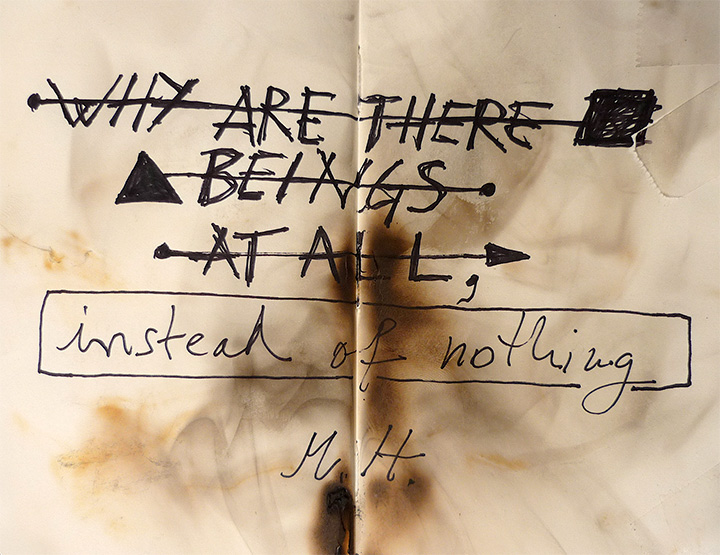 WHY ARE THERE
BEINGS
AT ALL,
instead of nothing
M. H.